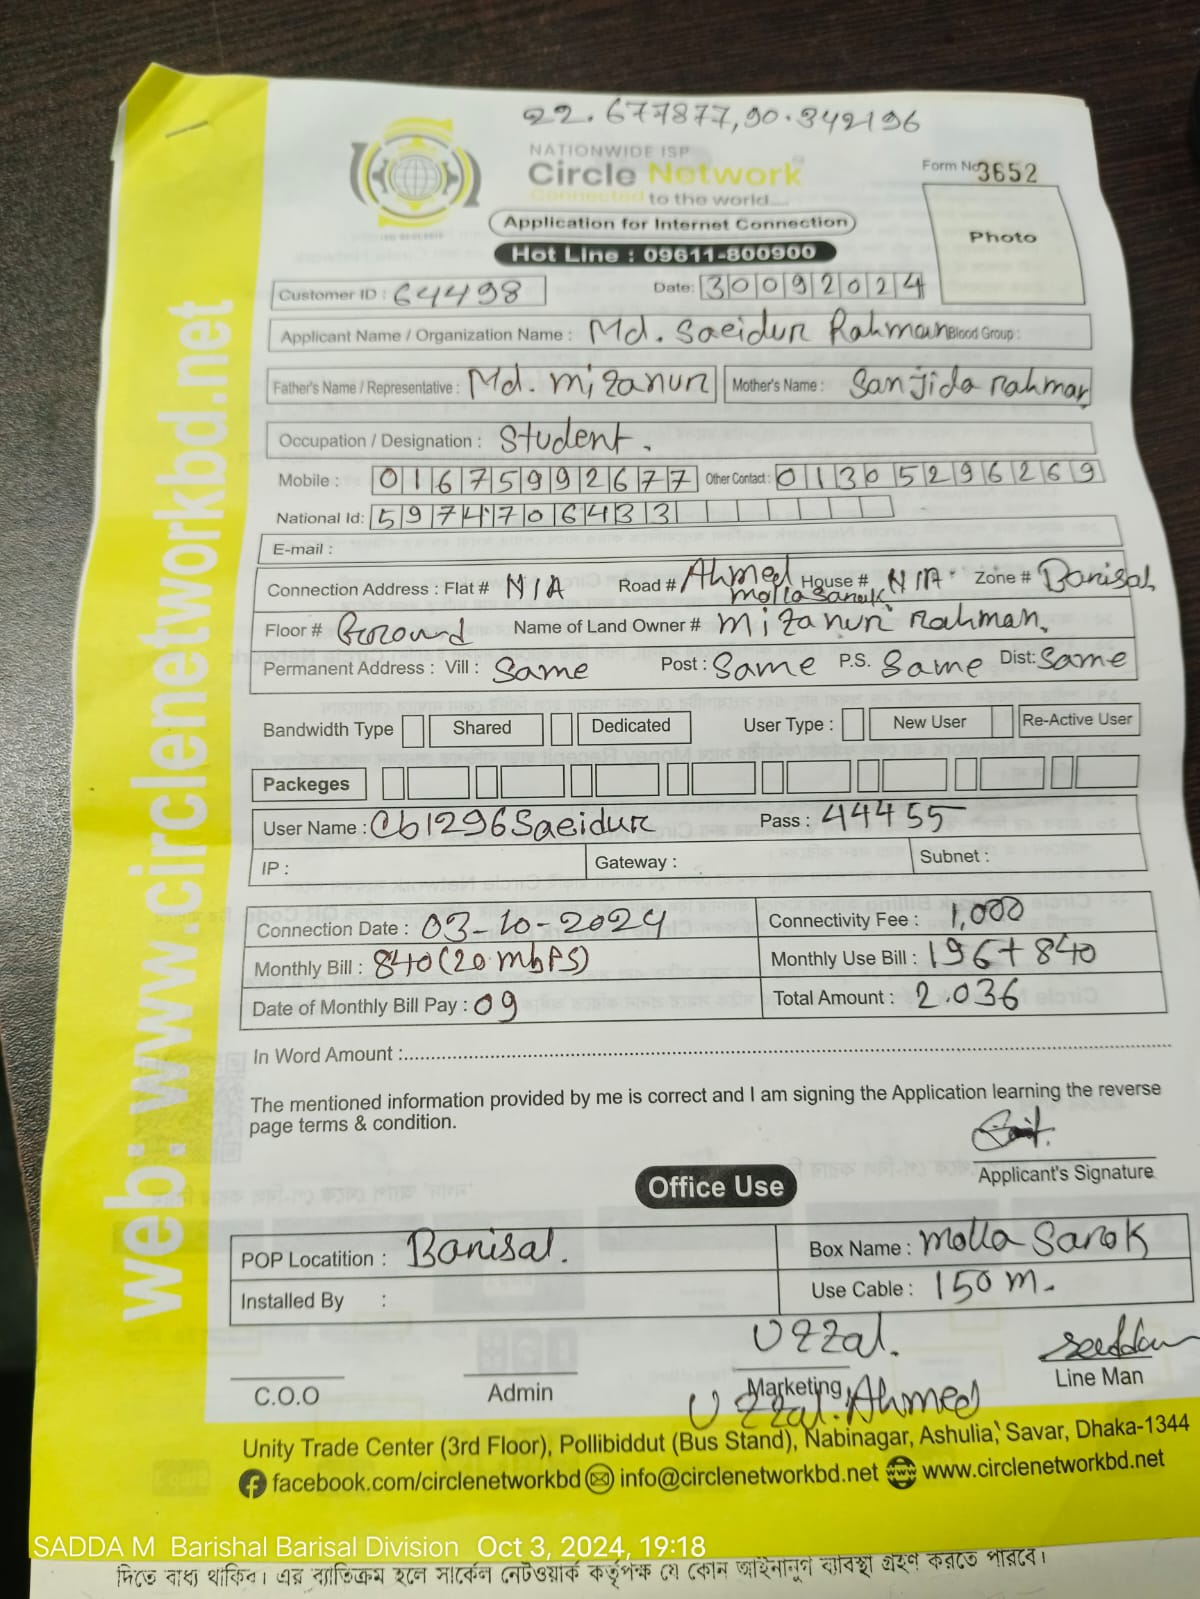 22.677877,90.342196
NATIONWIDE ISP
Circle Network
Connected to the world....
Form No 3652
Application for Internet Connection
Photo
Hot Line : 09611-800900
Customer ID : 64498 Date: 30092024
Applicant Name / Organization Name : Md. Saeidur Rahman Blood Group :
Father's Name / Representative : Md. mizanur Mother's Name : Sanjida rahman
Occupation / Designation : Student.
Mobile : 01675992677 Other Contact : 01305296269
National Id: 5974706433
E-mail :
Connection Address : Flat # N/A Road # Ahmed molla Sarok House # N/A Zone # Barisal
Floor # Ground Name of Land Owner # mizanur rahman.
Permanent Address : Vill : Same Post : Same P.S. Same Dist: Same
Bandwidth Type Shared Dedicated User Type : New User Re-Active User
Packeges
User Name : Cb1296Saeidur Pass : 44455
IP : Gateway : Subnet :
Connection Date : 03-10-2024 Connectivity Fee : 1,000
Monthly Bill : 840(20 mbPS) Monthly Use Bill : 196+840
Date of Monthly Bill Pay : 09 Total Amount : 2.036
In Word Amount :
The mentioned information provided by me is correct and I am signing the Application learning the reverse
page terms & condition.
Applicant's Signature
Office Use
POP Locatition : Barisal. Box Name : molla Sarok
Installed By : Use Cable : 150 m.
Uzzal.
C.O.O Admin Marketing Line Man
Uzzal. Ahmed
Unity Trade Center (3rd Floor), Pollibiddut (Bus Stand), Nabinagar, Ashulia, Savar, Dhaka-1344
facebook.com/circlenetworkbd info@circlenetworkbd.net www.circlenetworkbd.net
web: www.circlenetworkbd.net
SADDA M Barishal Barisal Division Oct 3, 2024, 19:18
দিতে বাধ্য থাকিব। এর ব্যতিক্রম হলে সার্কেল নেটওয়ার্ক কর্তৃপক্ষ যে কোন আইনানুগ ব্যবস্থা গ্রহণ করতে পারবে।